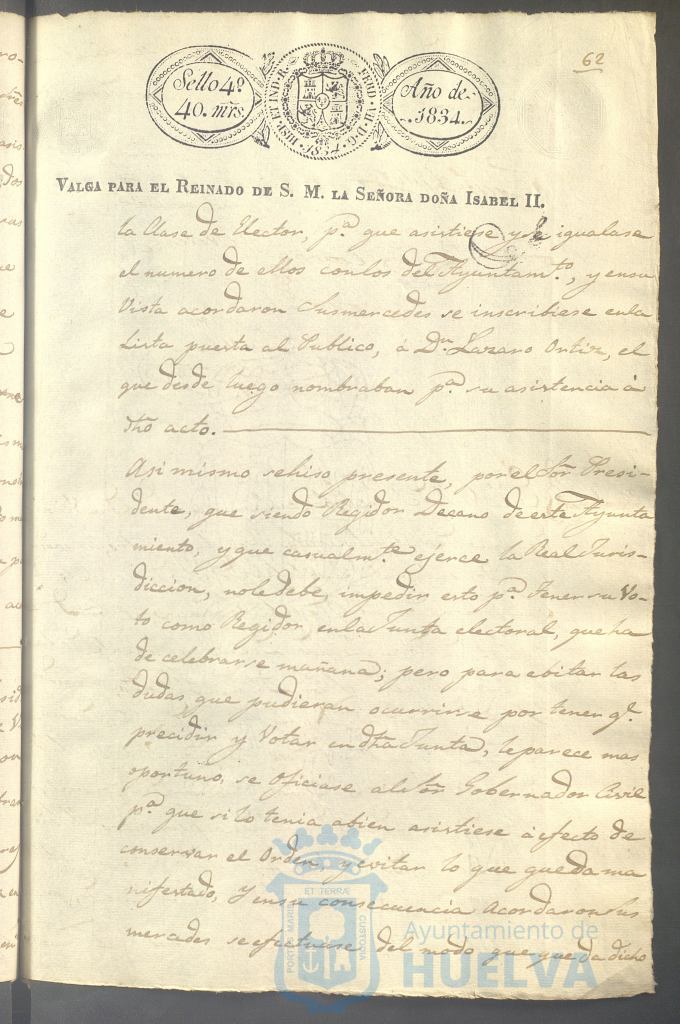 62
Sello 4º
40. mrs.
HISP. ET IND. R. FERD. VII. D. G. 1834
Año de
1834.
VALGA PARA EL REINADO DE S. M. LA SEÑORA DOÑA ISABEL II.
la Clase de Elector, pª que asistiese y se igualase
el numero de ellos con los del Ayuntamtº, y en su
Vista acordaron Susmercedes se inscribiese en la
Lista puesta al Publico, á Dn Lazaro Ortiz, el
que desde luego nombraban pª su asistencia á
dho acto.
Asi mismo se hiso presente, por el Sor Presi-
dente, que siendo Regidor Decano de este Ayunta
miento, y que casualmte ejerce la Real Juris-
diccion, no le debe, impedir esto pª tener su Vo-
to como Regidor, en la Junta electoral, que ha
de celebrarse mañana; pero para ebitar las
dudas, que pudieran ocurrirse por tener qe
precidir y Votar en dha Junta, le parece mas
oportuno, se oficiase al Sor Gobernador Civil
pª que si lo tenia abien asistiese á efecto de
conservar el Orden, y evitar lo que queda ma
nifestado, y en su consecuencia Acordaron Sus
mercedes se efectuase del modo que queda dicho
PORTUS MARIS ET TERRÆ CUSTODIA
Ayuntamiento de
HUELVA